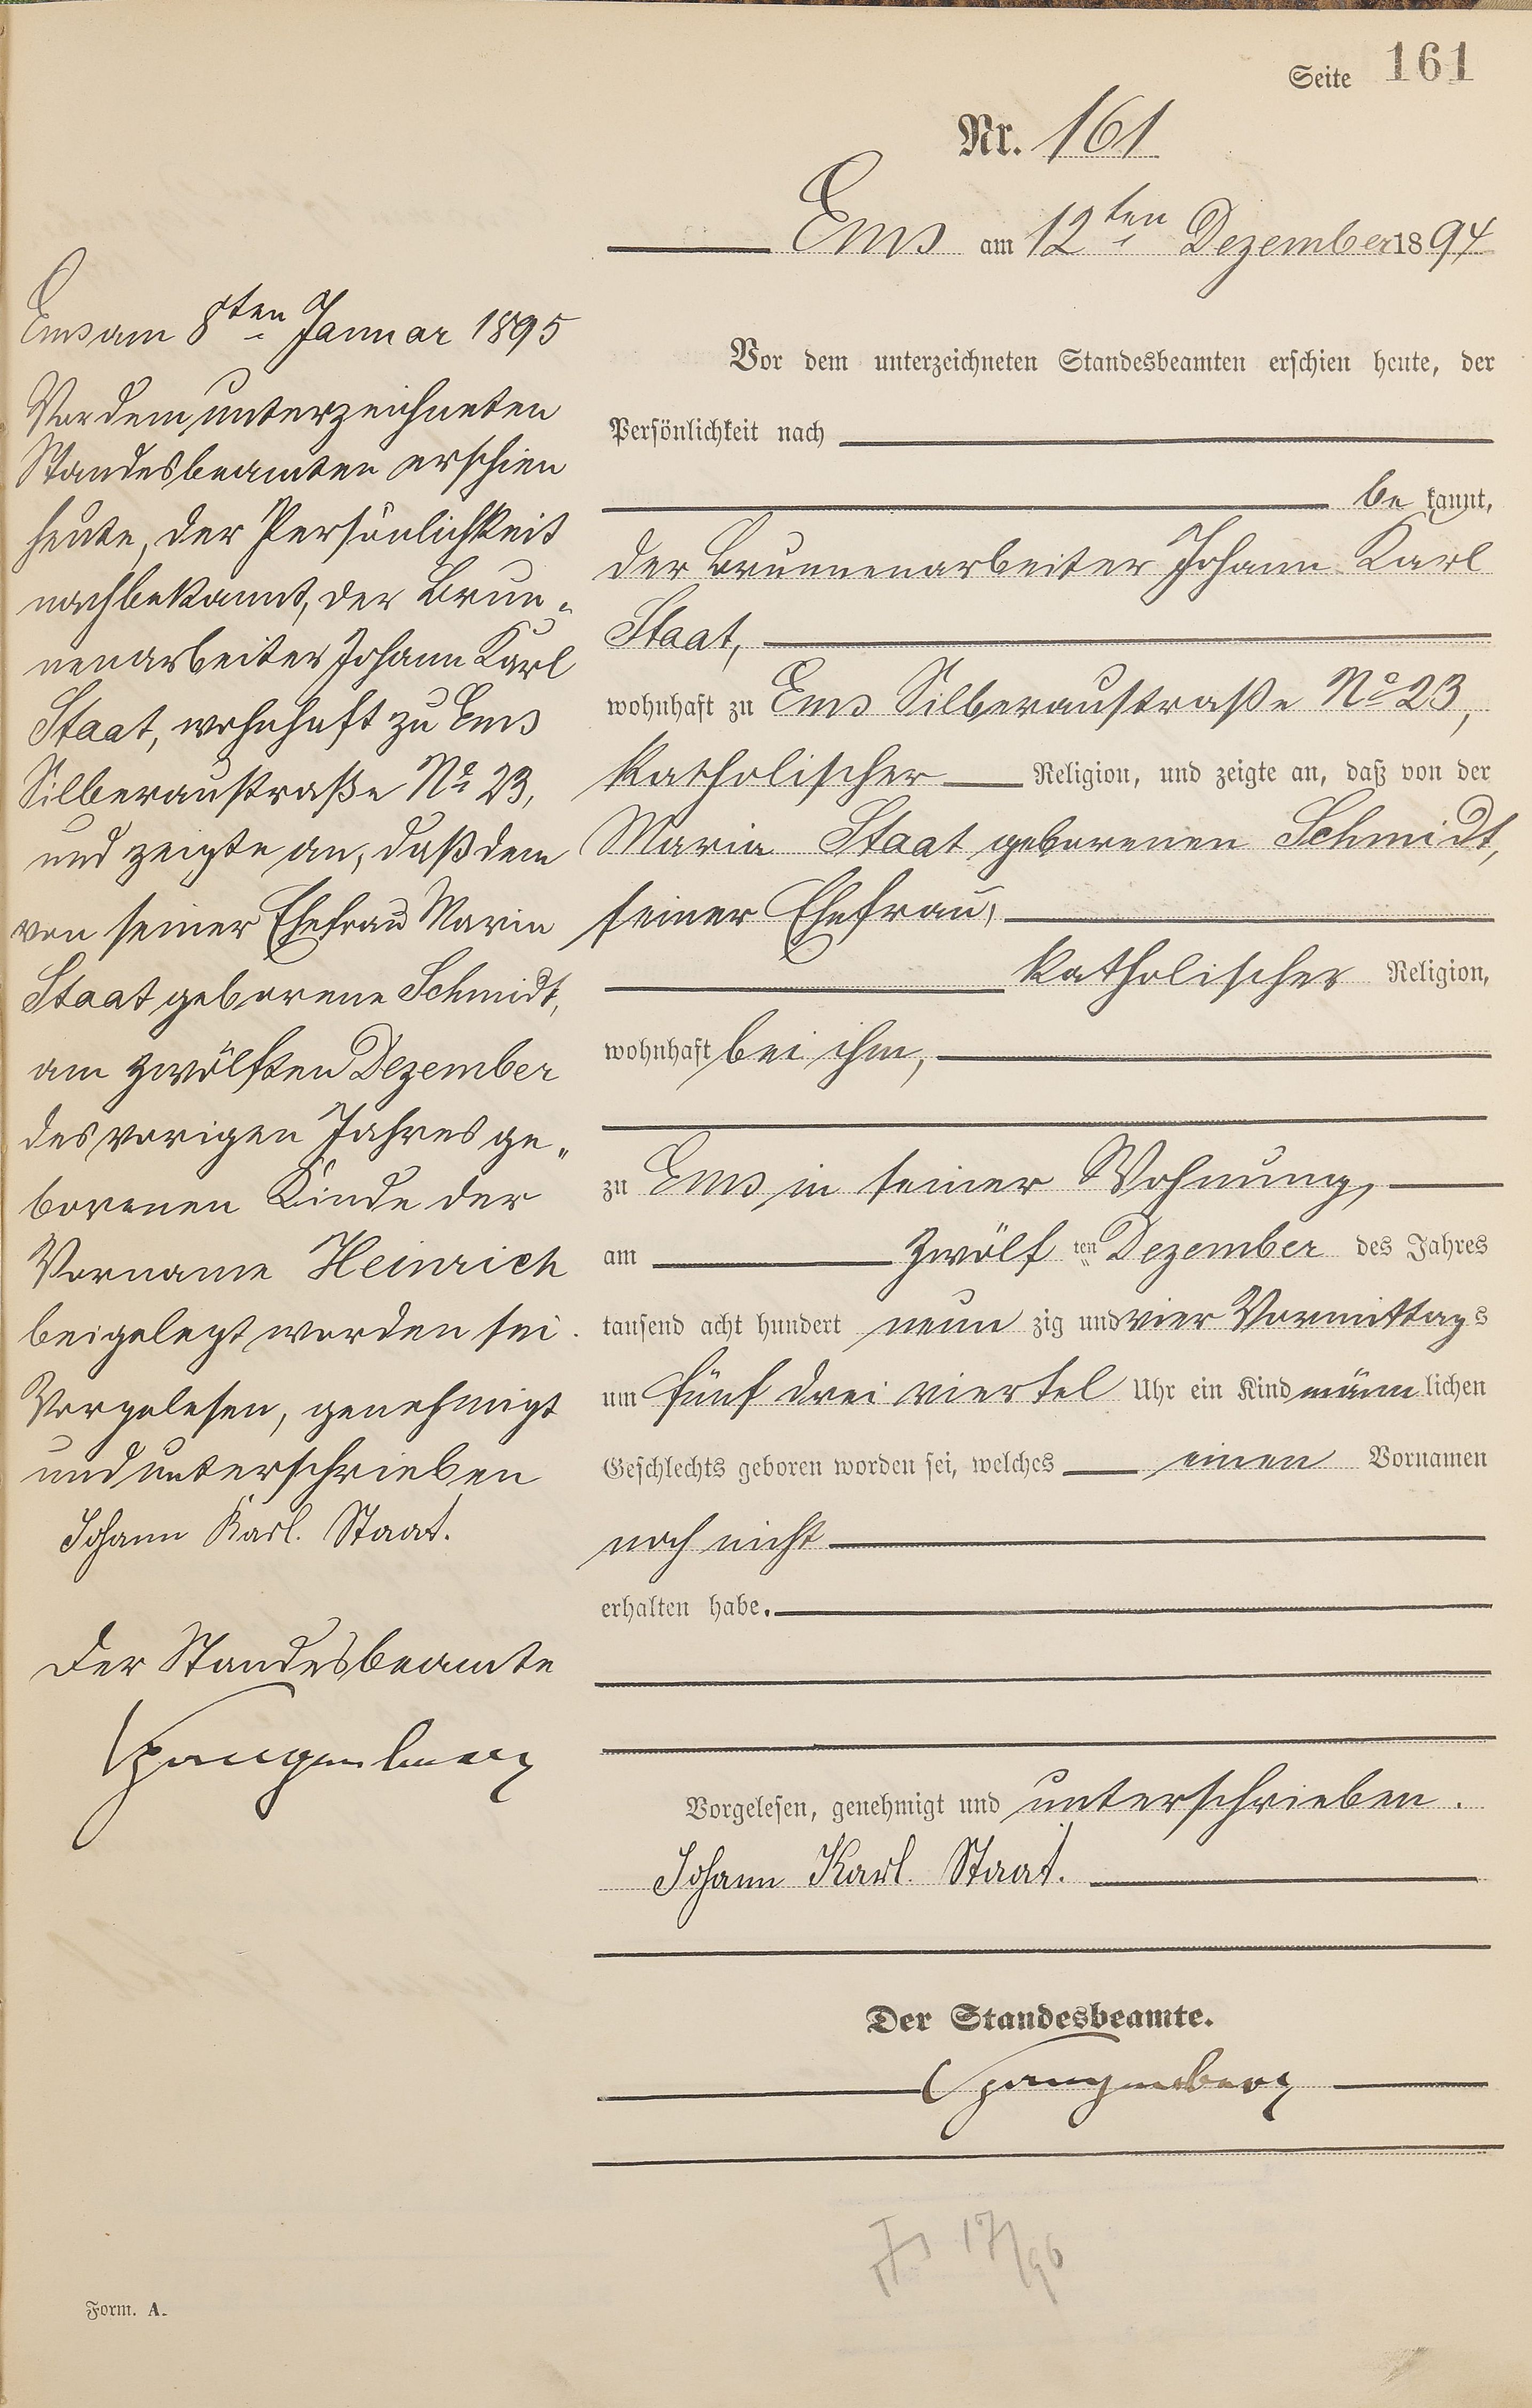 Seite 161
Nr. 161
Ems am 12ten Dezember 1894
Vor dem unterzeichneten Standesbeamten erschien heute, der
Persönlichkeit nach
be kannt,
der Brunnenarbeiter Johann Karl
Staat,
wohnhaft zu Ems Silberaustraße No 23,
katholischer Religion, und zeigte an, daß von der
Maria Staat geborenen Schmidt,
seiner Ehefrau,
katholischer Religion,
wohnhaft bei ihm,
zu Ems in seiner Wohnung,
am zwölf ten Dezember des Jahres
tausend acht hundert neun zig und vier Vormittags
um fünf drei viertel Uhr ein Kind männ lichen
Geschlechts geboren worden sei, welches einen Vornamen
noch nicht
erhalten habe.
Vorgelesen, genehmigt und unterschrieben.
Johann Karl. Staat.
Der Standesbeamte.
Spangenberg
Ems am 8ten Januar 1895
Vor dem unterzeichneten
Standesbeamten erschien
heute, der Persönlichkeit
nach bekannt, der Brun-
nenarbeiter Johann Karl
Staat, wohnhaft zu Ems
Silberaustraße No 23,
und zeigte an, daß dem
von seiner Ehefrau Maria
Staat geborene Schmidt,
am zwölften Dezember
des vorigen Jahres ge-
borenen Kinde der
Vorname Heinrich
beigelegt worden sei.
Vorgelesen, genehmigt
und unterschrieben
Johann Karl. Staat.
Der Standesbeamte
Spangenberg
17/96
Form. A.